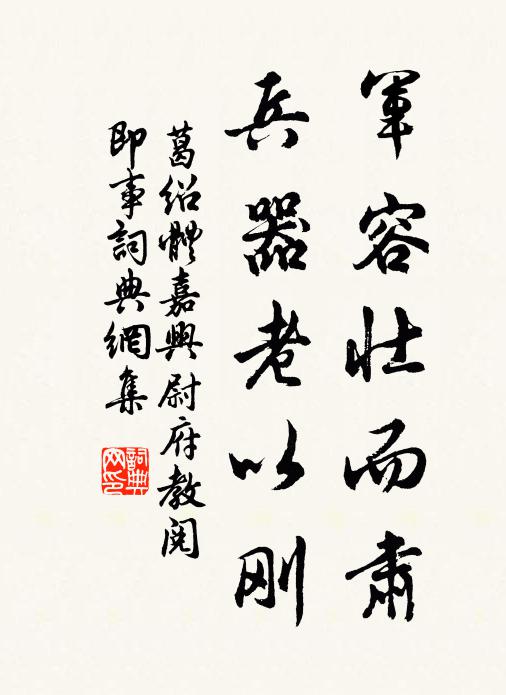 軍容壮而肅
兵器老以刚
葛紹體嘉興尉府教閱
即事詞典網集
詞典
网印